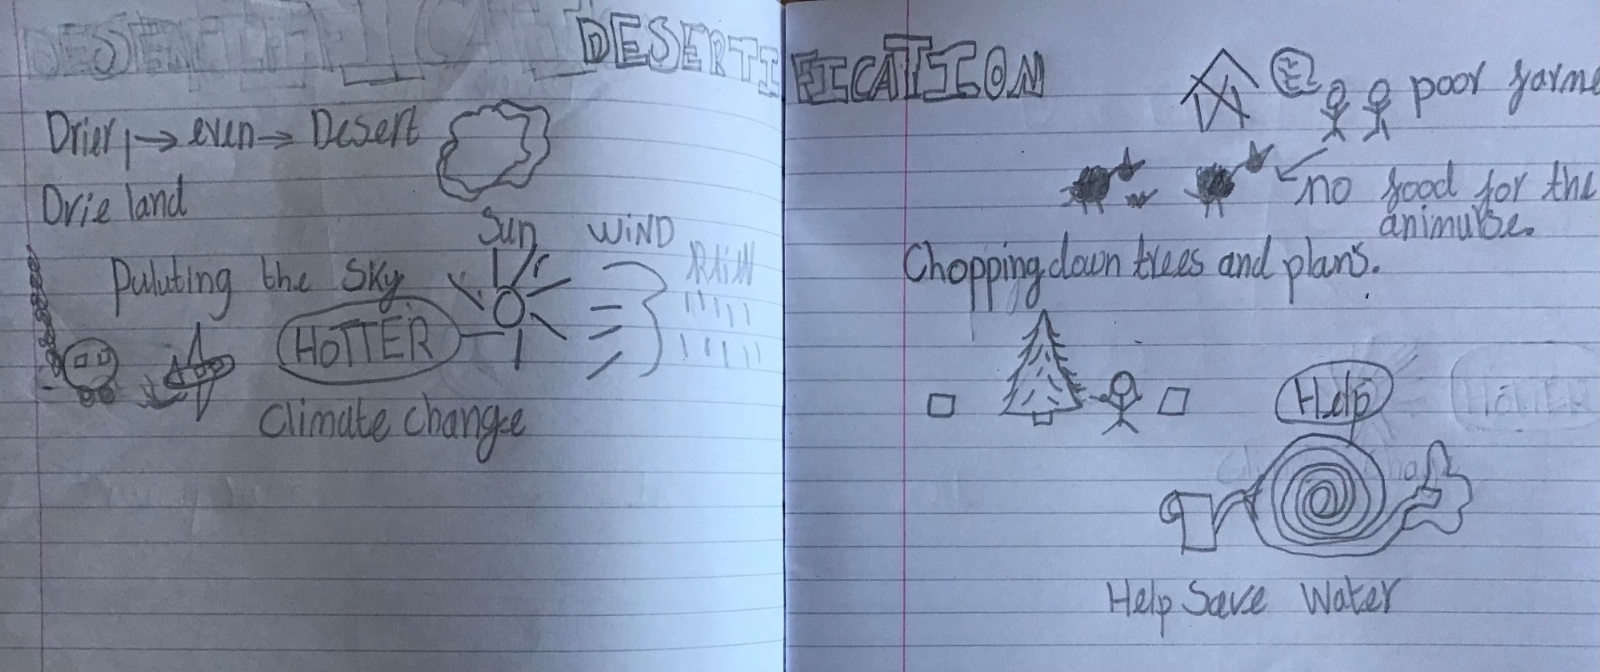 DESERTIFICATION
Drier, → even → Desert
Drie land
Puluting the sky
Sun WiND RAiN
HOTTER
Climate change
poor farme
no food for the
animulse.
Chopping down trees and plans.
Help
Help Save Water